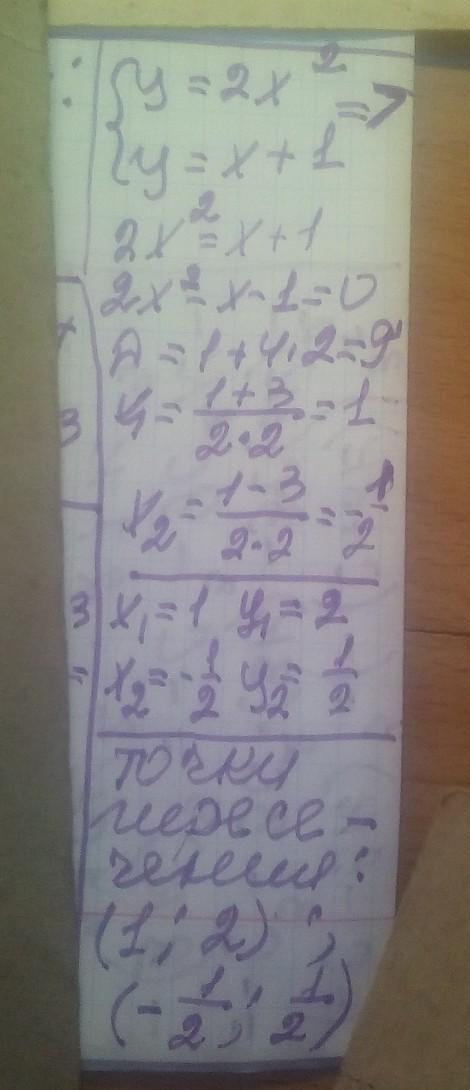 {y = 2x² =>
{y = x + 1
2x² = x + 1
2x² - x - 1 = 0
D = 1 + 4·2 = 9
x₁ = (1+3)/(2·2) = 1
x₂ = (1-3)/(2·2) = -1/2
x₁ = 1 y₁ = 2
x₂ = -1/2 y₂ = 1/2
точки
пересе -
чения:
(1; 2);
(-1/2; 1/2)